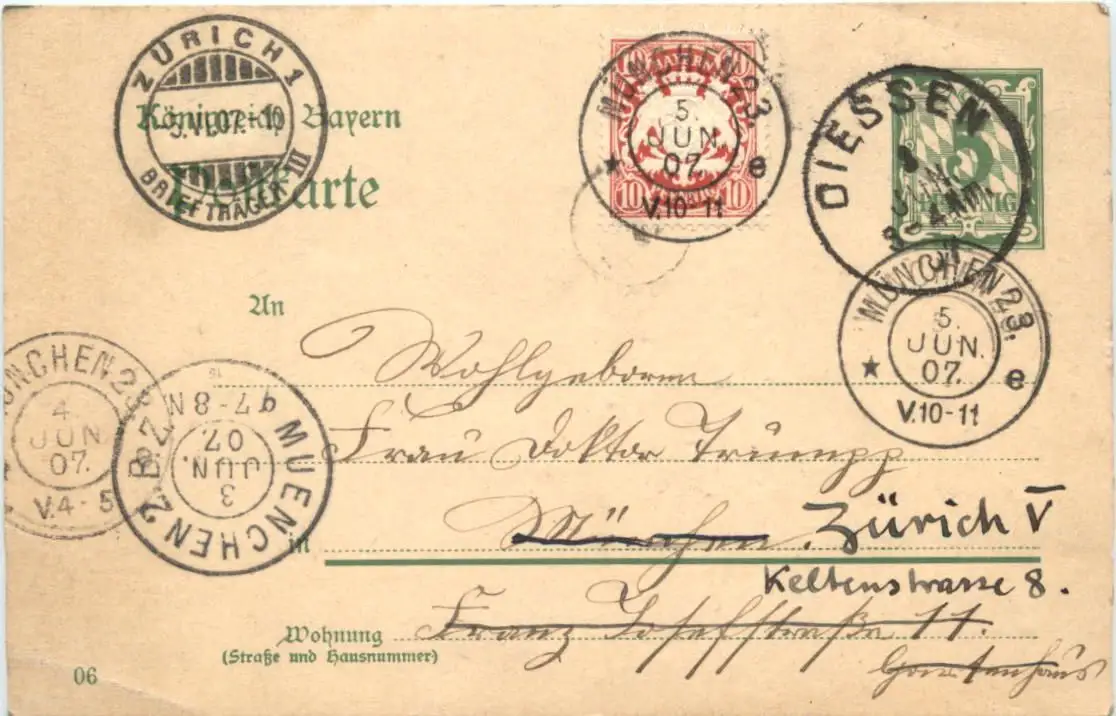 ZÜRICH 1
-5.VI.07.-10
BRIEFTRÄGER III
Königreich Bayern
Postkarte
10 10
10 PFENNIG 10
MÜNCHEN 23.
5.
JUN
07.
V.10-11
★ e
DIESSEN
5
PFENNIG
MÜNCHEN 23.
5.
JUN.
07.
V.10-11
★ e
An
Wohlgeboren
Frau Doktor Trumpp
in München. Zürich V
Keltenstrasse 8.
Wohnung Franz Josefstraße 11.
(Straße und Hausnummer)
Gartenhaus
MÜNCHEN 2
4.
JUN
07.
V.4-5
MUENCHEN 2. B.Z.
3
JUN.
07
7-8 N
06